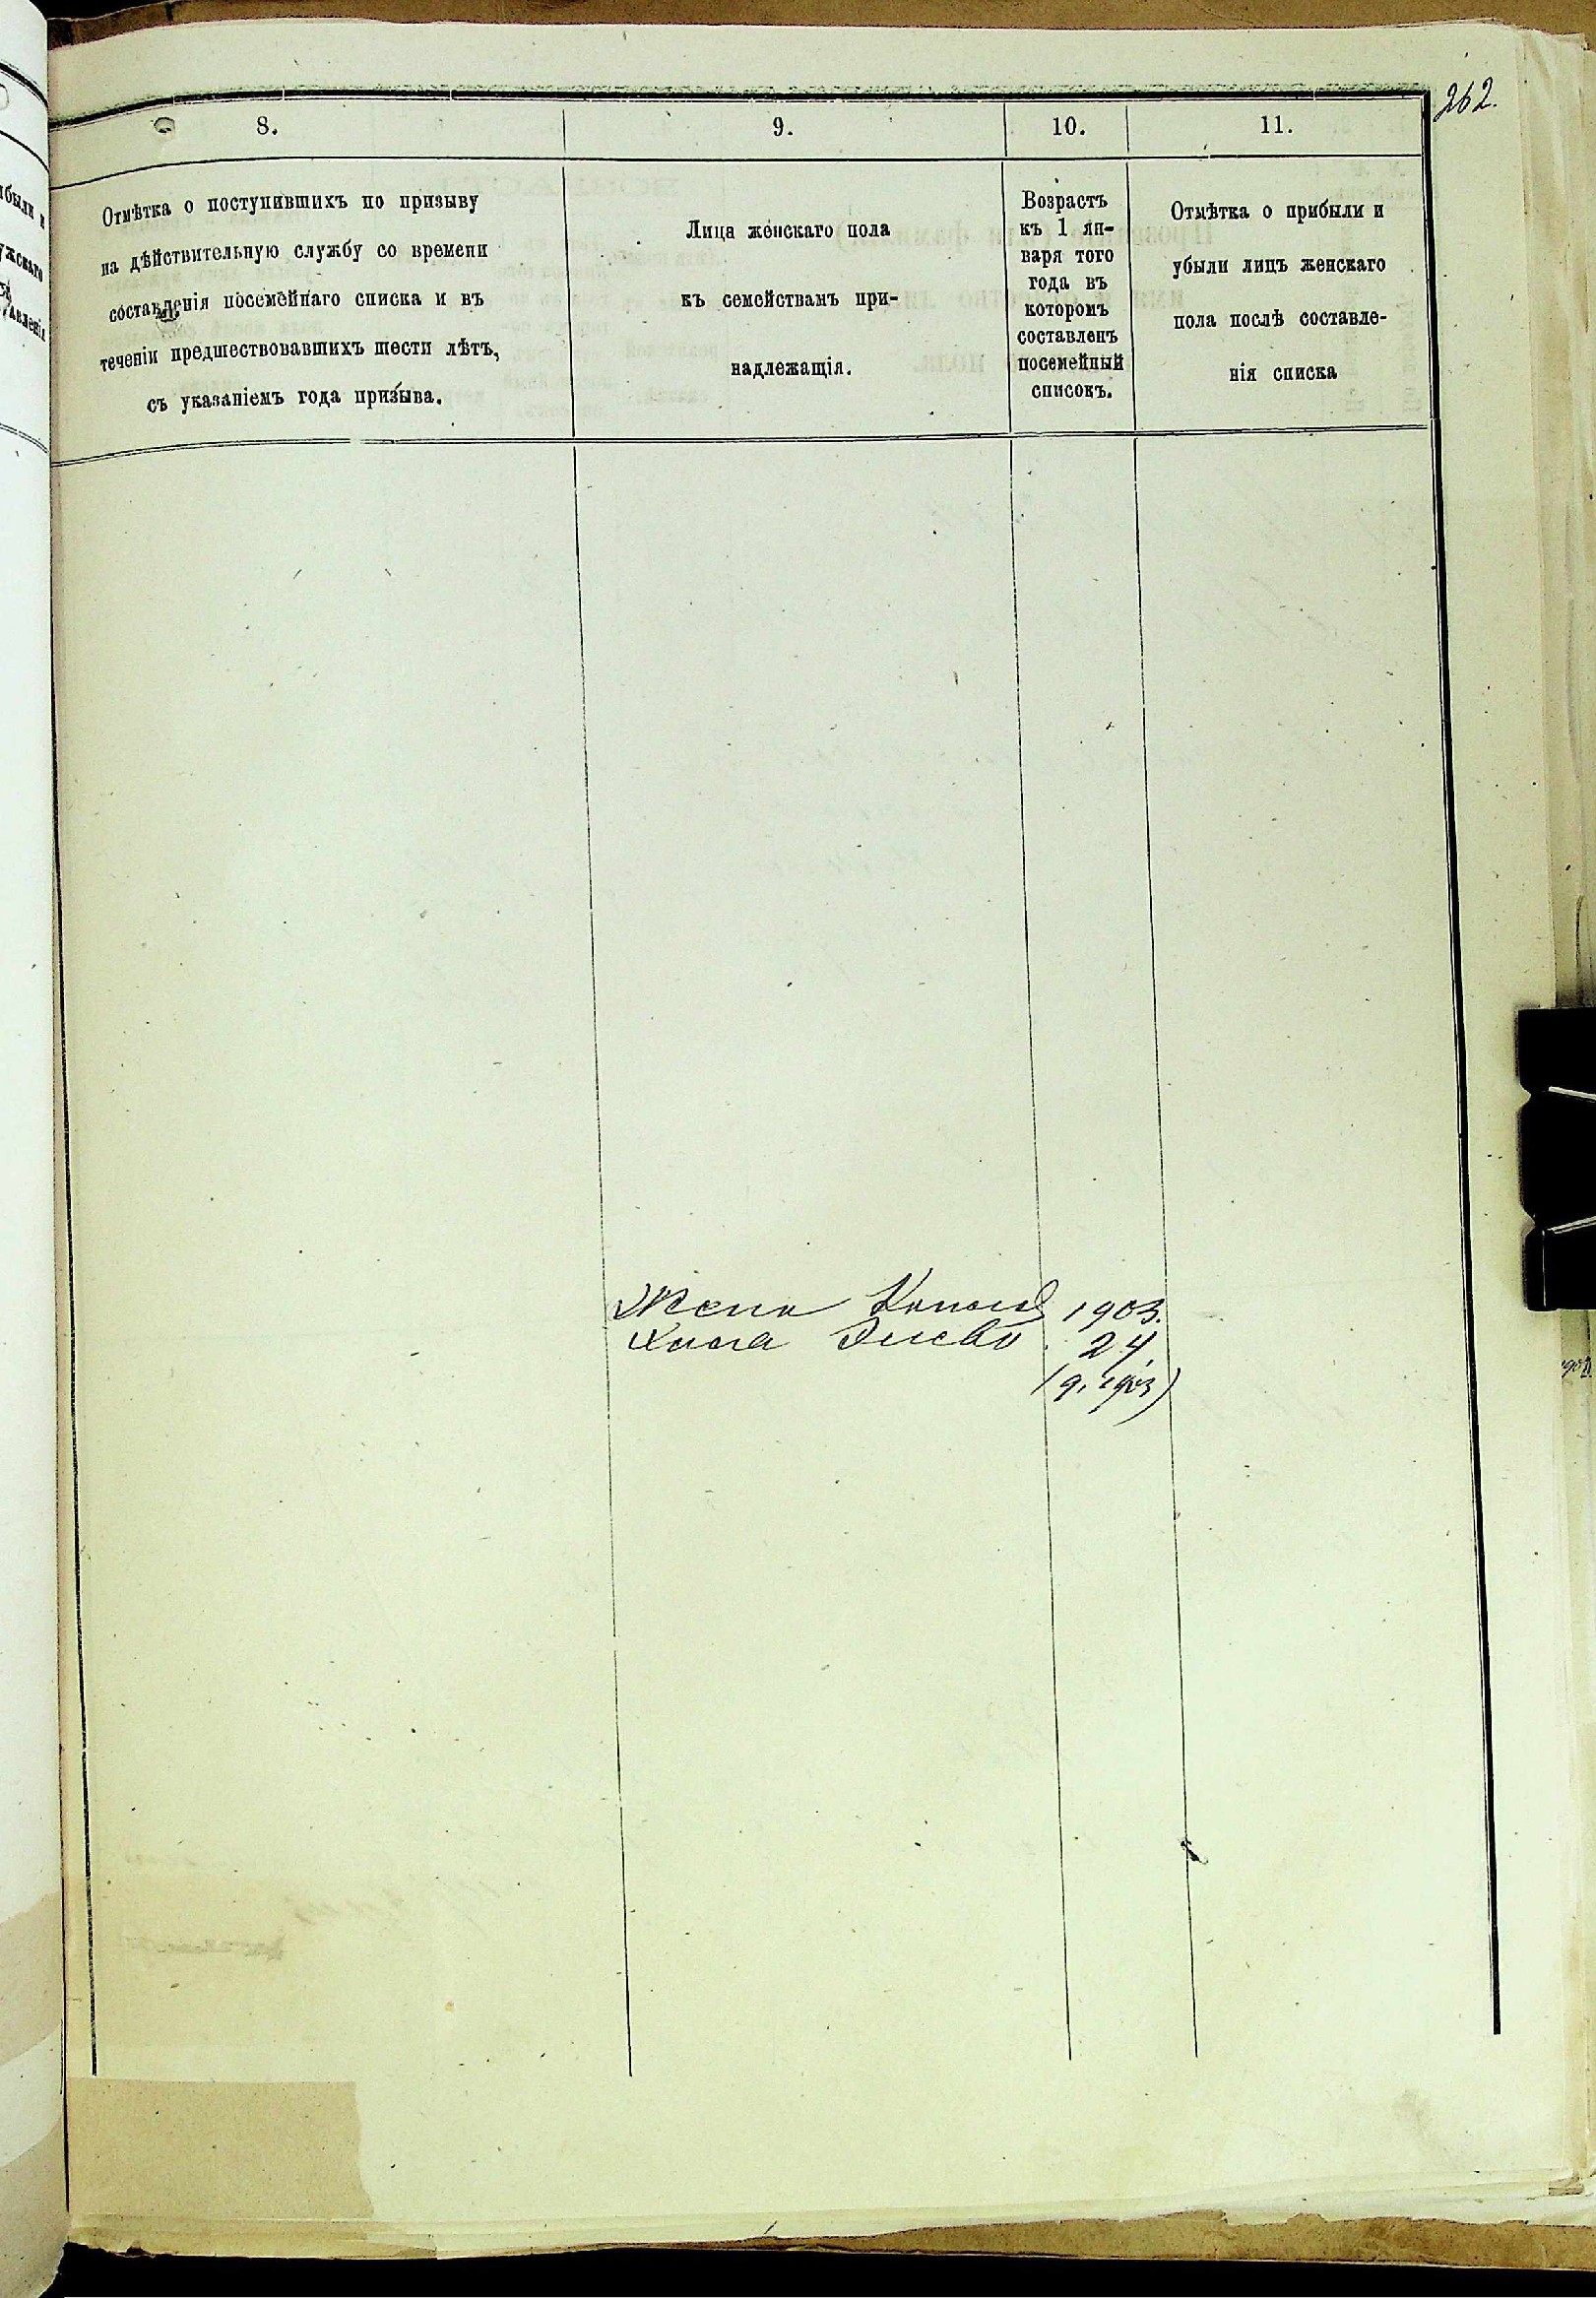 262.
8.
9.
10.
11.
Отмѣтка о поступившихъ по призыву
на дѣйствительную службу со времени
составленія посемейнаго списка и въ
теченіи предшествовавшихъ шести лѣтъ,
съ указаніемъ года призыва.
Лица женскаго пола
къ семействамъ при-
надлежащія.
Возрастъ
къ 1 ян-
варя того
года въ
которомъ
составленъ
посемейный
списокъ.
Отмѣтка о прибыли и
убыли лицъ женскаго
пола послѣ составле-
нія списка
Жена 1903.
24